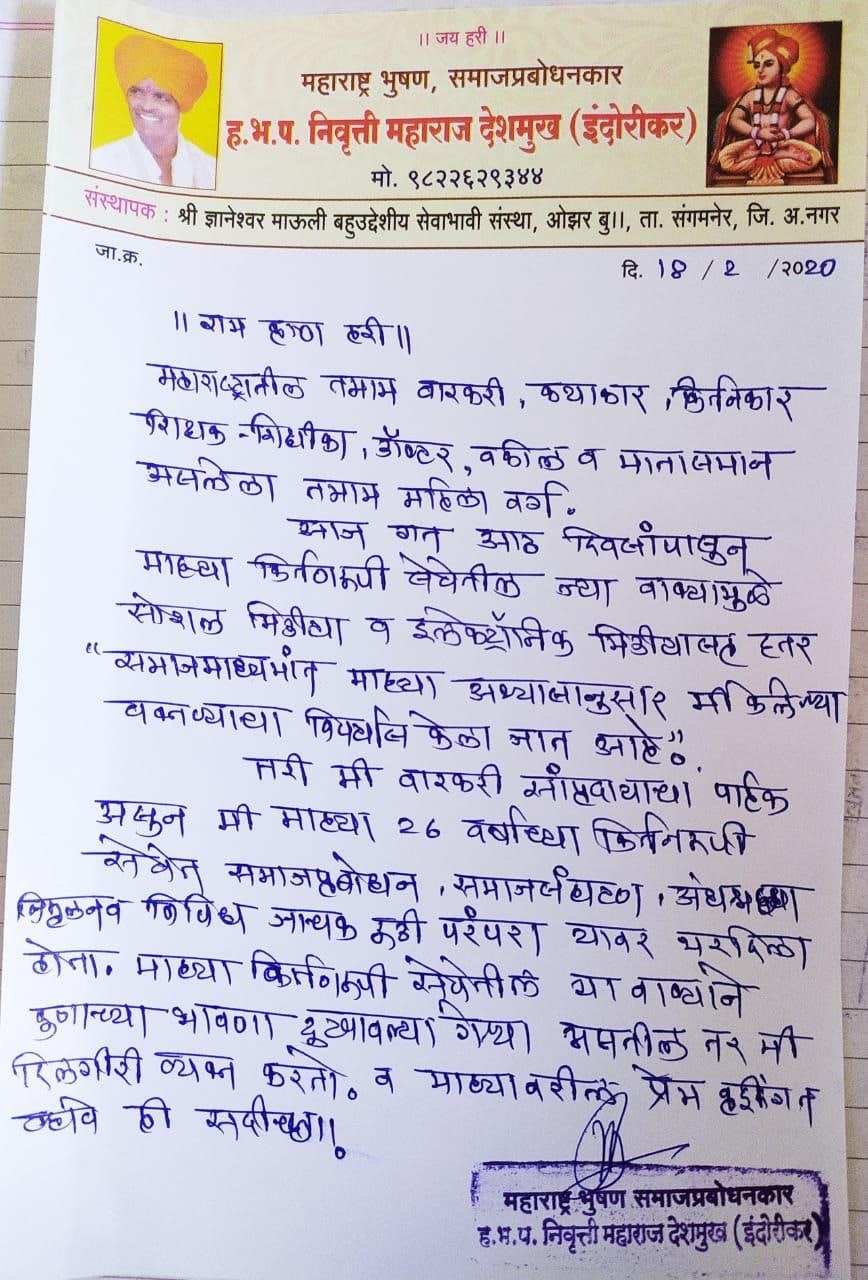 ।। जय हरी ।।
महाराष्ट्र भुषण, समाजप्रबोधनकार
ह.भ.प. निवृत्ती महाराज देशमुख (इंदोरीकर)
मो. ९८२२६२९३४४
संस्थापक : श्री ज्ञानेश्वर माऊली बहुउद्देशीय सेवाभावी संस्था, ओझर बु॥, ता. संगमनेर, जि. अ.नगर
जा.क्र.
दि. 18 / 2 /२०20
॥ राम कृष्ण हरी॥
महाराष्ट्रातील तमाम वारकरी, कथाकार, किर्तनकार
शिक्षक-शिक्षीका, डॉक्टर, वकील व मातासमान
असलेला तमाम महिला वर्ग.
आज गत आठ दिवसांपासुन
माझ्या किर्तनरूपी सेवेतील ज्या वाक्यामुळे
सोशल मिडीया व इलेक्ट्रॉनिक मिडीयासह इतर
"समाजमाध्यमांत माझ्या अभ्यासानुसार मी केलेल्या
वक्तव्याचा विपर्यास केला जात आहे".
तरी मी वारकरी सांप्रदायाचा पाईक
असुन मी माझ्या 26 वर्षाच्या किर्तनरूपी
सेवेत समाजप्रबोधन, समाजसंघटन, अंधश्रध्दा
निमुलनव विविध जाचक रूढी परंपरा यावर भरदिला
होता. माझ्या किर्तनरूपी सेवेतील या वाक्याने
कुणाच्या भावणा दुखावल्या गेल्या असतील तर मी
दिलगीरी व्यक्त करतो. व माझ्यावरील प्रेम वृद्धिंगत
व्हावे ही सदीच्छा॥.
महाराष्ट्र भुषण समाजप्रबोधनकार
ह.भ.प. निवृत्ती महाराज देशमुख (इंदोरीकर)